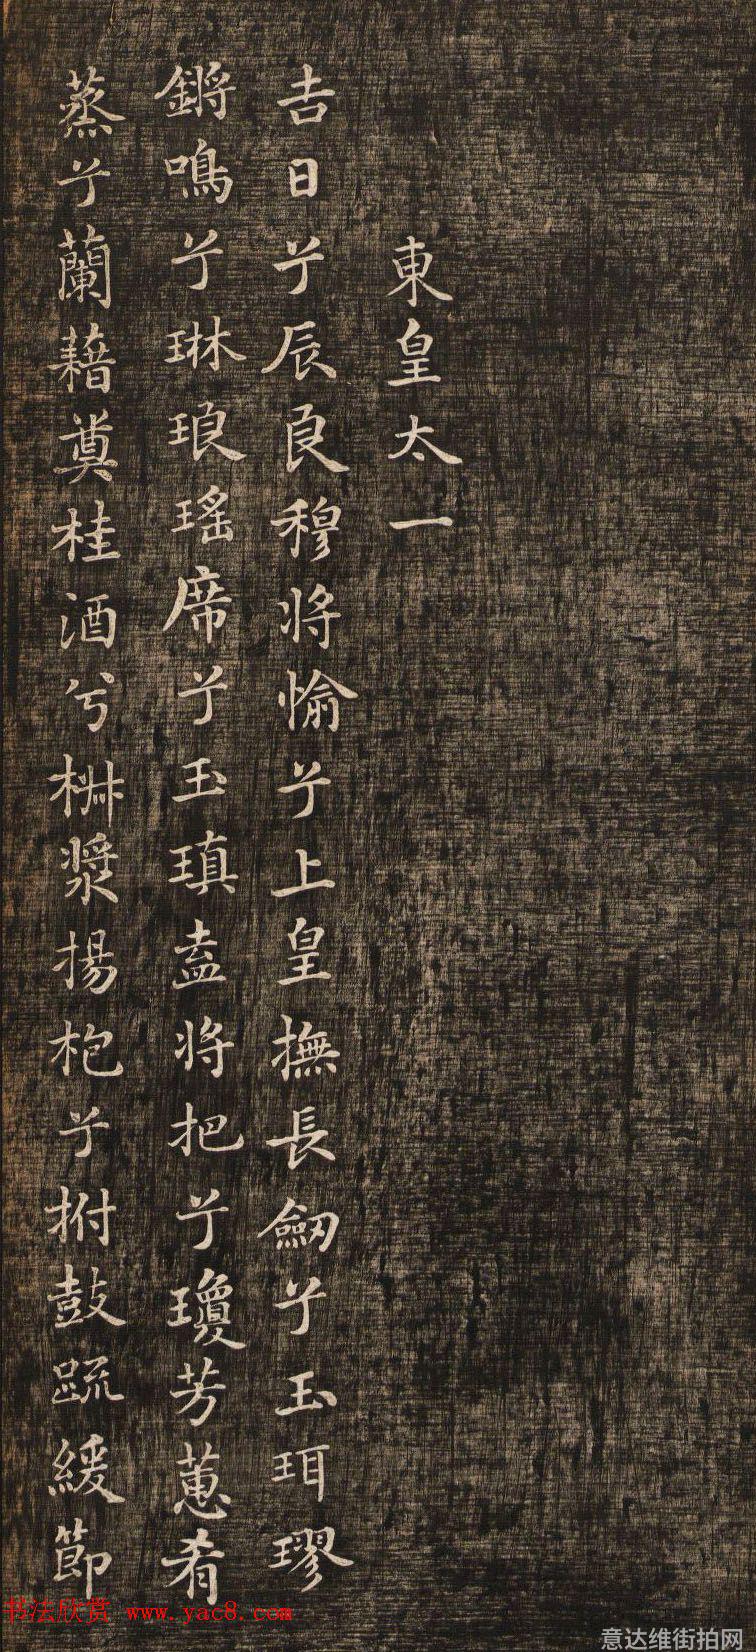 東皇太一
吉日兮辰良穆將愉兮上皇撫長劒兮玉珥璆
鏘鳴兮琳琅瑤席兮玉瑱盍將把兮瓊芳蕙肴
蒸兮蘭藉奠桂酒兮椒漿揚枹兮拊鼓疏緩節
书法欣赏 www.yac8.com
意达维街拍网